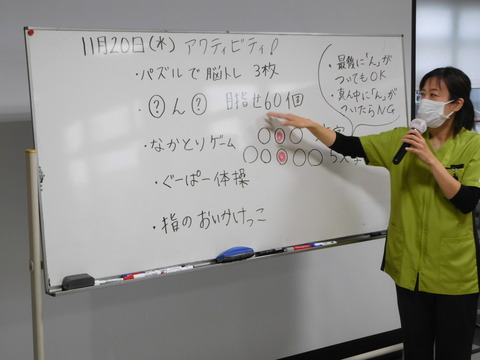 11月20日(水) アクティビティ!
・パズルで脳トレ 3枚
・?ん? 目指せ60個
・最後に「ん」が
ついてもOK
・真ん中に「ん」が
ついたらNG
・なかとりゲーム
・ぐーぱー体操
・指のおいかけっこ